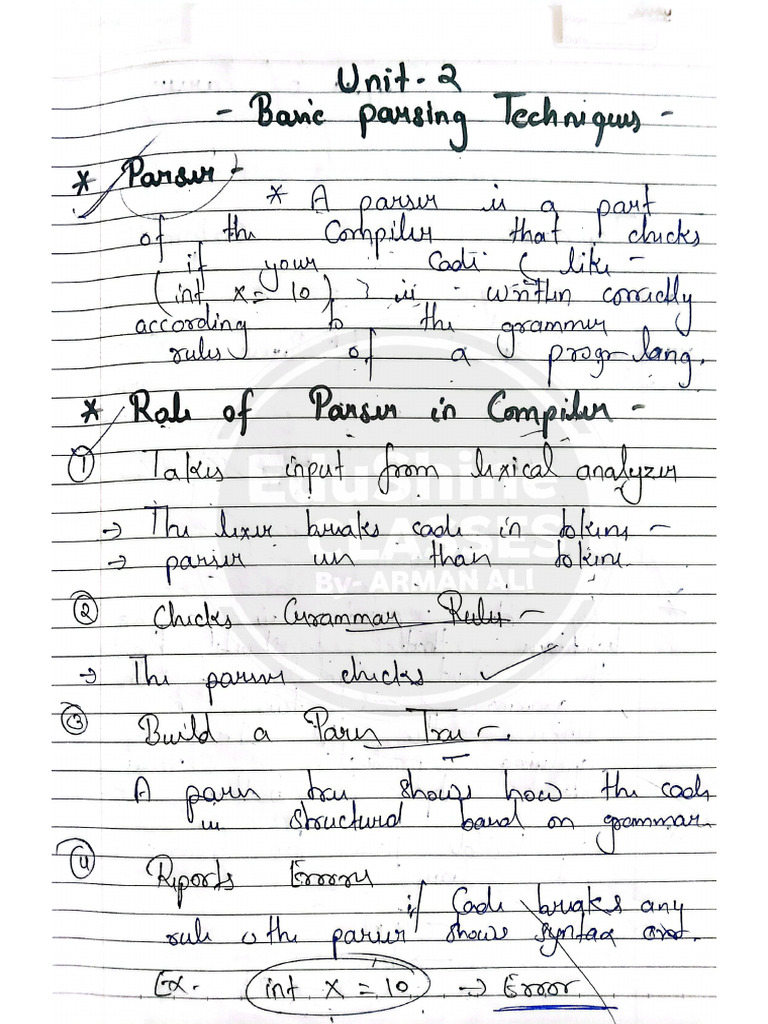 Unit-2
- Basic parsing Techniques -
* Parser -
* A parser is a part
of the Compiler that checks
if your Code ( like -
(int x = 10) } is written correctly
according to the grammer
rules of a progr lang.
* Role of Parser in Compiler -
① Takes input from lexical analyzer
→ The lexer breaks code in tokens -
→ parser use than tokens.
② Checks Grammar Rules -
→ The parser checks ✓
③ Build a Parse Tree -
A parse tree shows how the code
is structured based on grammar.
④ Reports Errors
if Code breaks any
rule the parser shows syntax
Ex. int x = 10 → Error
EduShine
CLASSES
By- ARMAN ALI